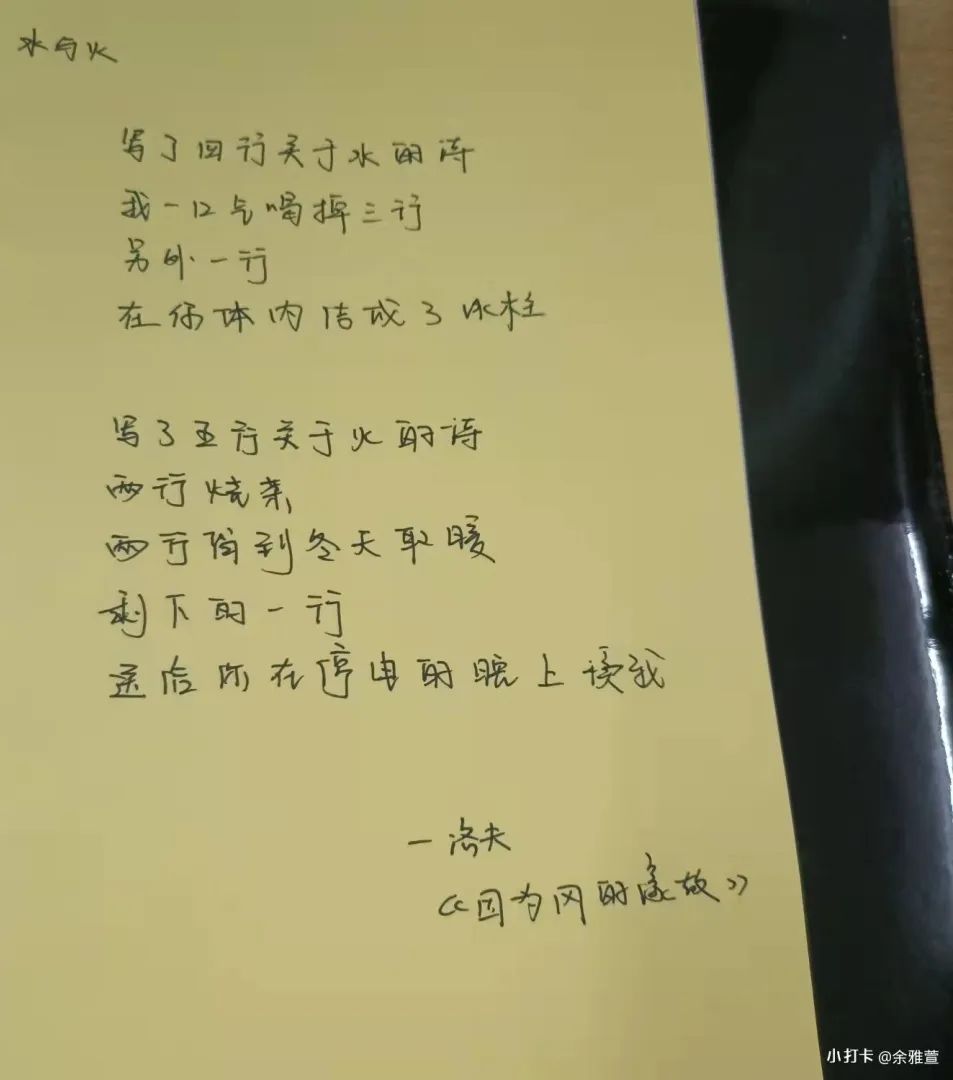 水与火
写了四行关于水的诗
我一口气喝掉三行
另外一行
在你体内结成了冰柱
写了五行关于火的诗
两行烧茶
两行留到冬天取暖
剩下的一行
送给你在停电的晚上读我
一洛夫
《因为风的缘故》
小打卡 @余雅萱